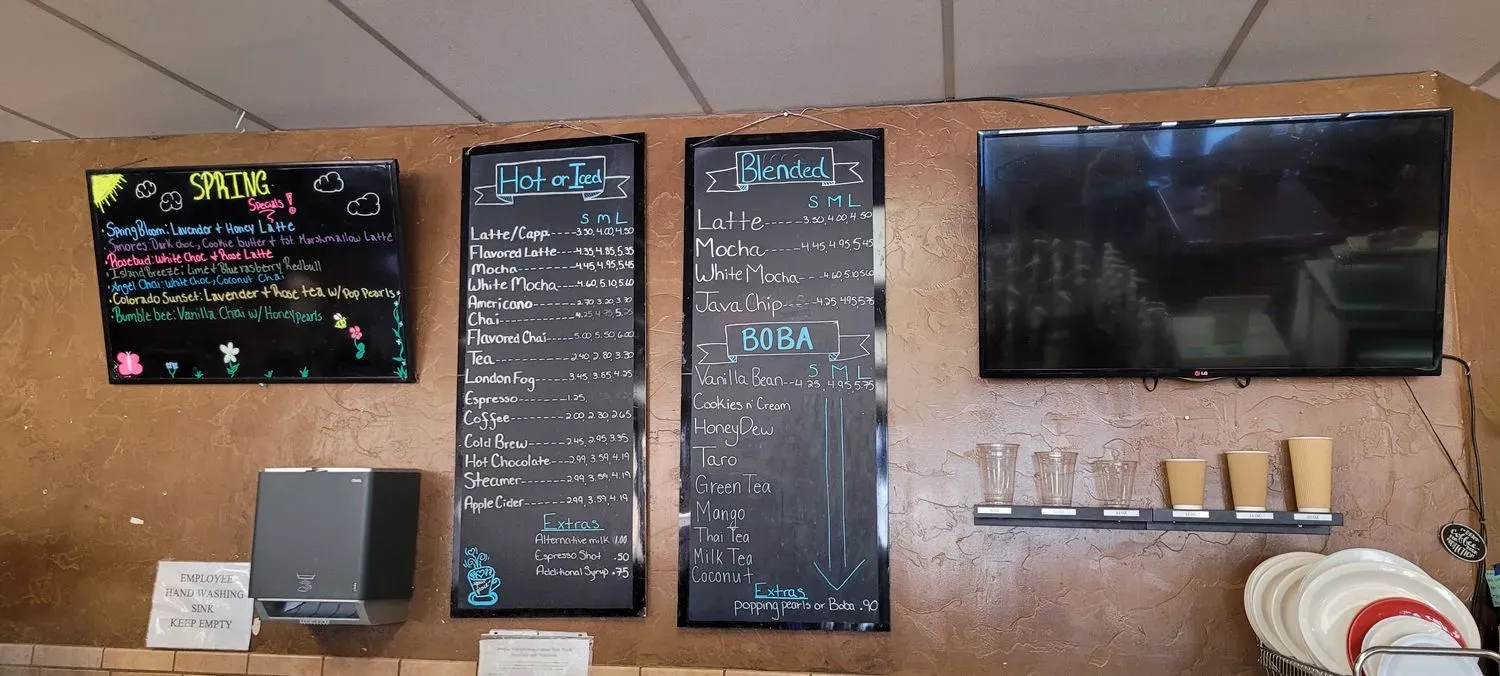 SPRING
Specials!
Spring Bloom: Lavender + Honey Latte
Smores: Dark choc, Cookie butter + tst Marshmallow Latte
Rosebud: White choc + Rose Latte
Island Breeze: Lime + Blue rasberry Redbull
Angel Chai: white choc, Coconut Chai
Colorado Sunset: Lavender + Rose tea w/ Pop Pearls
Bumble bee: Vanilla Chai w/ Honey pearls
EMPLOYEE
HAND WASHING
SINK
KEEP EMPTY
Hot or Iced
S M L
Latte/Capp. 3.50, 4.00, 4.50
Flavored Latte 4.35, 4.85, 5.35
Mocha 4.45, 4.95, 5.45
White Mocha 4.60, 5.10, 5.60
Americano 2.70, 3.20, 3.70
Chai 4.25, 4.75, 5.25
Flavored Chai 5.00, 5.50, 6.00
Tea 2.40, 2.80, 3.30
London Fog 3.45, 3.85, 4.25
Espresso 1.25,
Coffee 2.00, 2.30, 2.65
Cold Brew 2.45, 2.95, 3.35
Hot Chocolate 2.99, 3.59, 4.19
Steamer 2.99, 3.59, 4.19
Apple Cider 2.99, 3.59, 4.19
Extras
Alternative milk 1.00
Espresso Shot .50
Additional Syrup .75
Blended
S M L
Latte 3.50, 4.00, 4.50
Mocha 4.45, 4.95, 5.45
White Mocha 4.60, 5.10, 5.60
Java Chip 4.25, 4.95, 5.75
BOBA
S M L
Vanilla Bean 4.25, 4.95, 5.75
Cookies n' Cream
HoneyDew
Taro
Green Tea
Mango
Thai Tea
Milk Tea
Coconut
Extras
popping pearls or Boba .90
LG